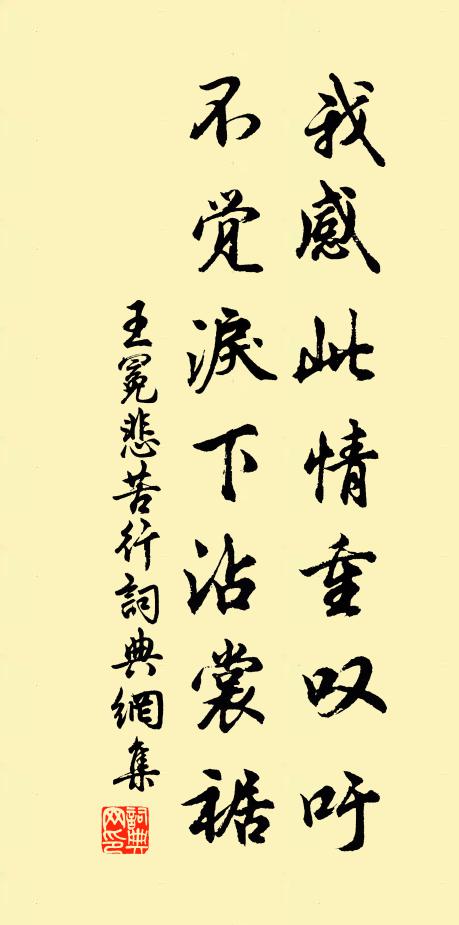 我感此情重叹吁
不觉淚下沾裳裾
王冕悲苦行詞典網集
詞典網印